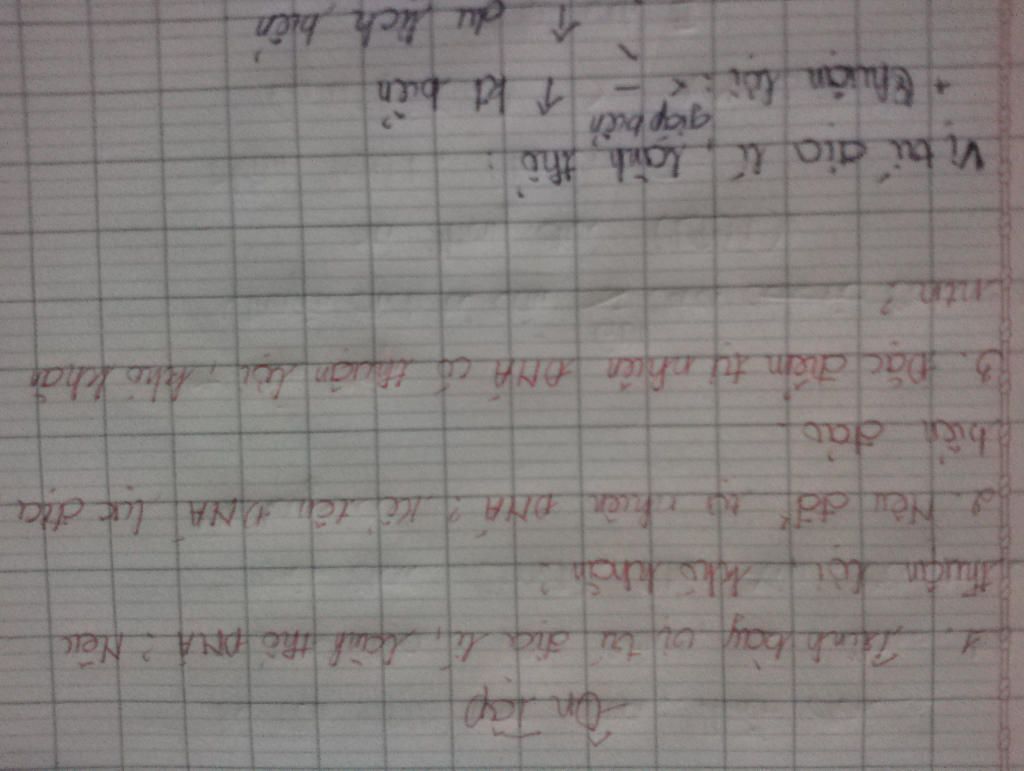 Ôn tập
1. Trình bày vị trí địa lí, lãnh thổ ĐNA? Nêu
thuận lợi, khó khăn?
2. Nêu đđ tự nhiên ĐNA? Kể tên ĐNA lục địa
biển đảo.
3. Đặc điểm tự nhiên ĐNA có thuận lợi, khó khăn
ntn?
Vị trí địa lí, lãnh thổ:
giáp biển
+ Thuận lợi: < - ↑ kt biển
↑ du lịch biển